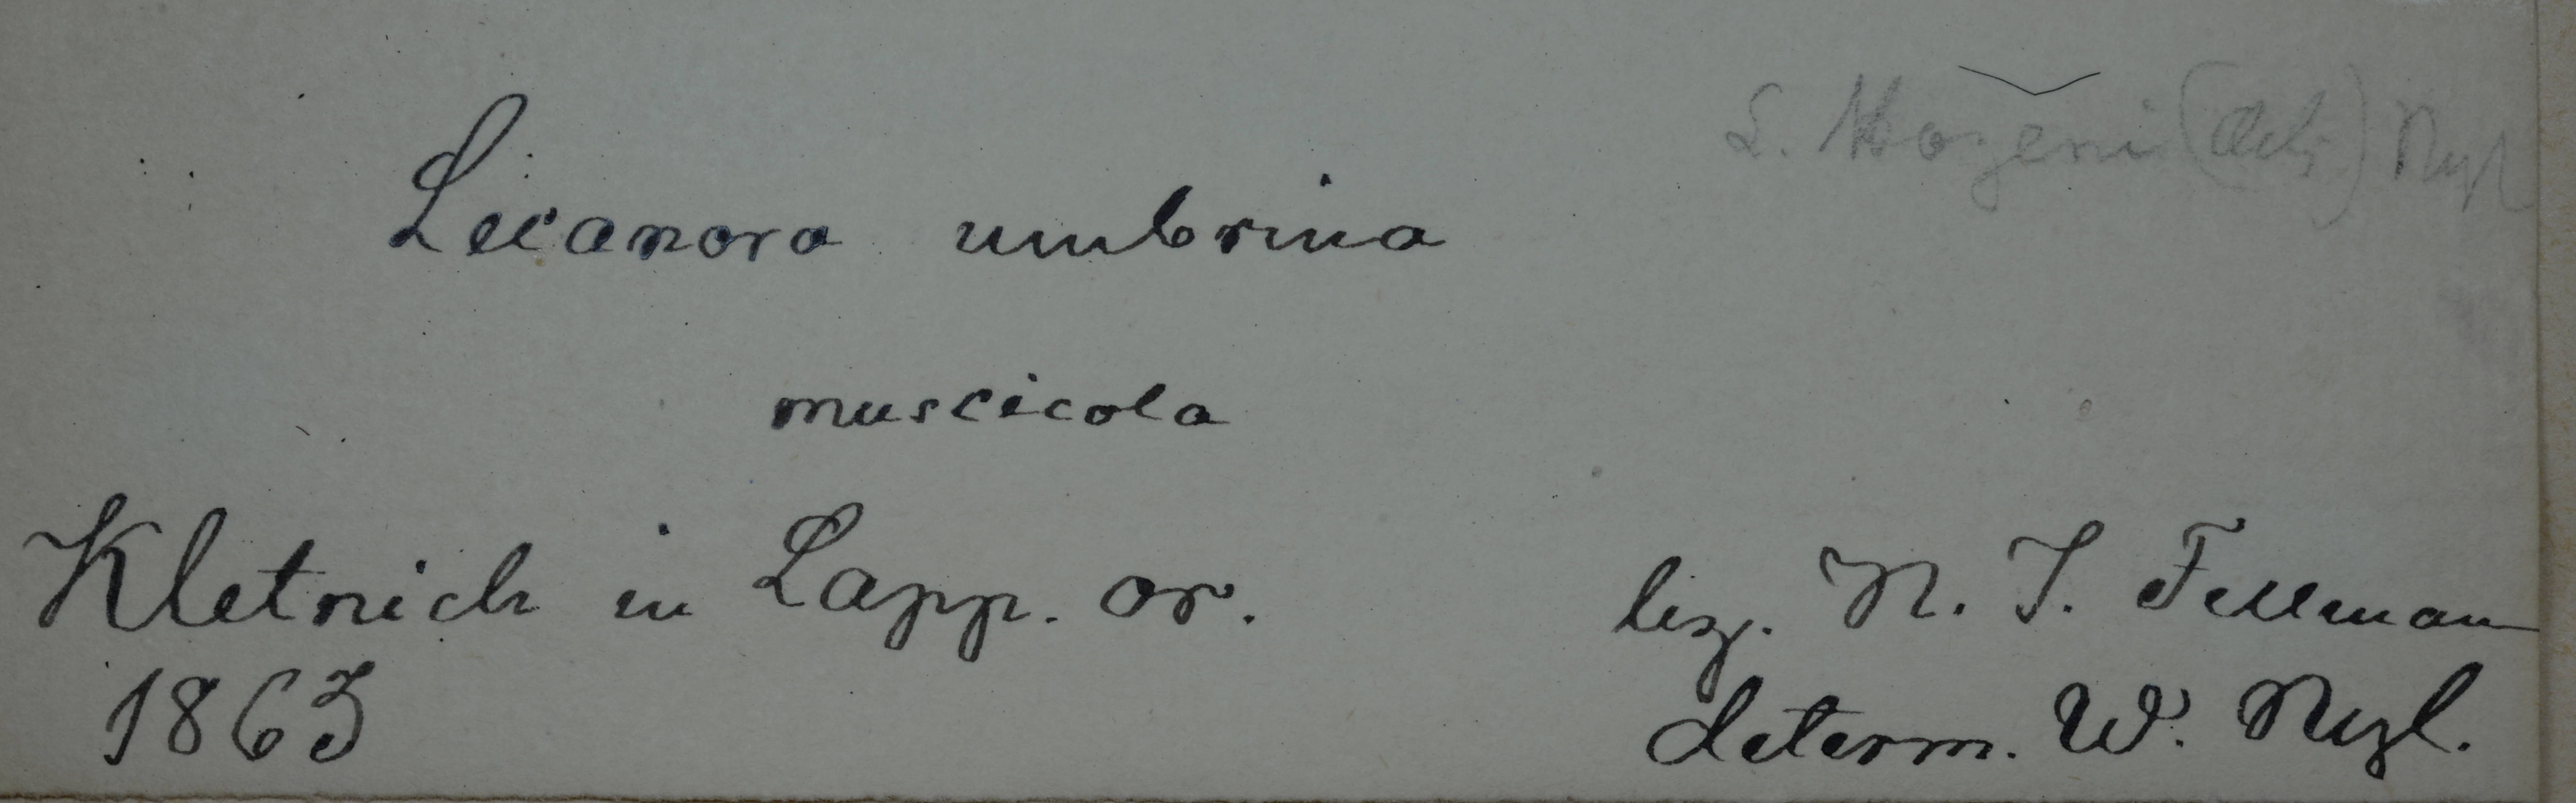 L. Hageni (Ach) Nyl
Lecanora umbrina
muscicola
Kletnich in Lapp. or.
1863
leg. N. I. Fellman
determ. W. Nyl.